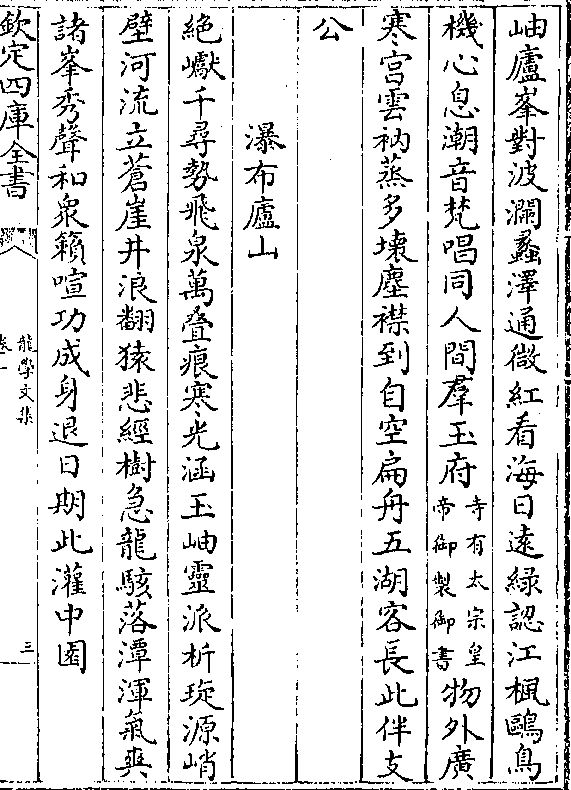 岫廬峯對波瀾蠡澤通微紅看海日遠緑認江楓鷗鳥
機心息潮音梵唱同人間羣玉府寺有太宗皇帝御製御書物外廣
寒宫雲衲蒸多壊塵襟到自空扁舟五湖客長此伴支
公
瀑布廬山
絶巘千尋勢飛泉萬疊痕寒光涵玉岫靈派析琁源峭
壁河流立蒼崖井浪翻猿悲經樹急龍駭落潭渾氣爽
諸峯秀聲和衆籟喧功成身退日期此灌中園
欽定四庫全書
龍學文集
卷一
三